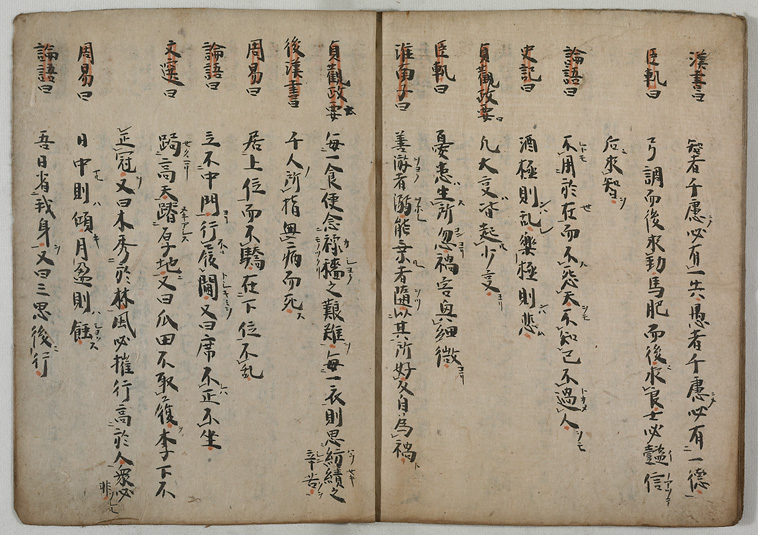 漢書曰 智者千慮必有一失愚者千慮必有一德
臣軌曰 弓調而後求勁馬肥而後求良士必懿信
后求智
論語曰 不用於在而不怨天不知己不過人
史記曰 酒極則乱樂極則悲
貞觀政要曰 凡大變皆起少變
臣軌曰 憂患生所忽禍害興細微
淮南子曰 善游者溺能乗者隨以其所好反自為禍
貞觀政要云 每一食便念稼穡之艱難每一衣則思紡績之辛苦
後漢書 千人所指無病而死
周易曰 居上位而不驕在下位不乱
論語曰 立不中門行不履閾又曰席不正不坐
文選曰 跼高天蹐厚地又曰瓜田不取履李下不
正冠又曰木秀於林風必摧行高於人衆必非
周易曰 日中則傾月盈則蝕
論語曰 吾日省我身又曰三思後行